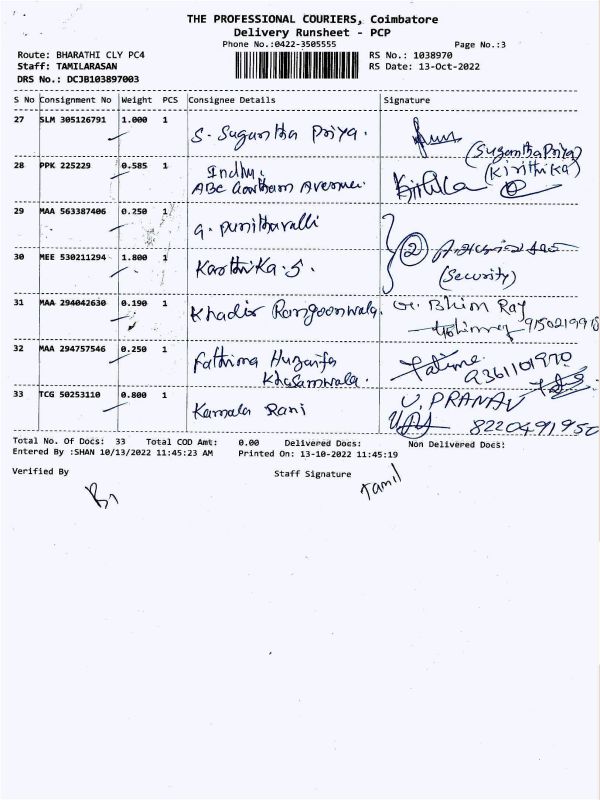 THE PROFESSIONAL COURIERS, Coimbatore
Delivery Runsheet - PCP
Phone No.:0422-3505555 Page No.:3
Route: BHARATHI CLY PC4 RS No.: 1038970
Staff: TAMILARASAN RS Date: 13-Oct-2022
DRS No.: DCJB103897003
S No Consignment No Weight PCS Consignee Details Signature
27 SLM 305126791 1.000 1 S. Sugantha Priya.
(Sugantha Priya)
28 PPK 225229 0.585 1 Indhu. (Kirithika)
ABC Gowtham Avenue.
29 MAA 563387406 0.250 1 G. Punithavalli
30 MEE 530211294 1.800 1 Karthika.S. 2
(Security)
31 MAA 294042630 0.190 1 Khadir Rangoonwala. Bhim Ray
32 MAA 294757546 0.250 1 Fathima Huzaifa Fatima
Khasamwala. 9361101970
33 TCG 50253110 0.800 1 Kamala Rani U. PRANAV
8220491950
Total No. Of Docs: 33 Total COD Amt: 0.00 Delivered Docs: Non Delivered Docs:
Entered By :SHAN 10/13/2022 11:45:23 AM Printed On: 13-10-2022 11:45:19
Verified By Staff Signature
Tamil